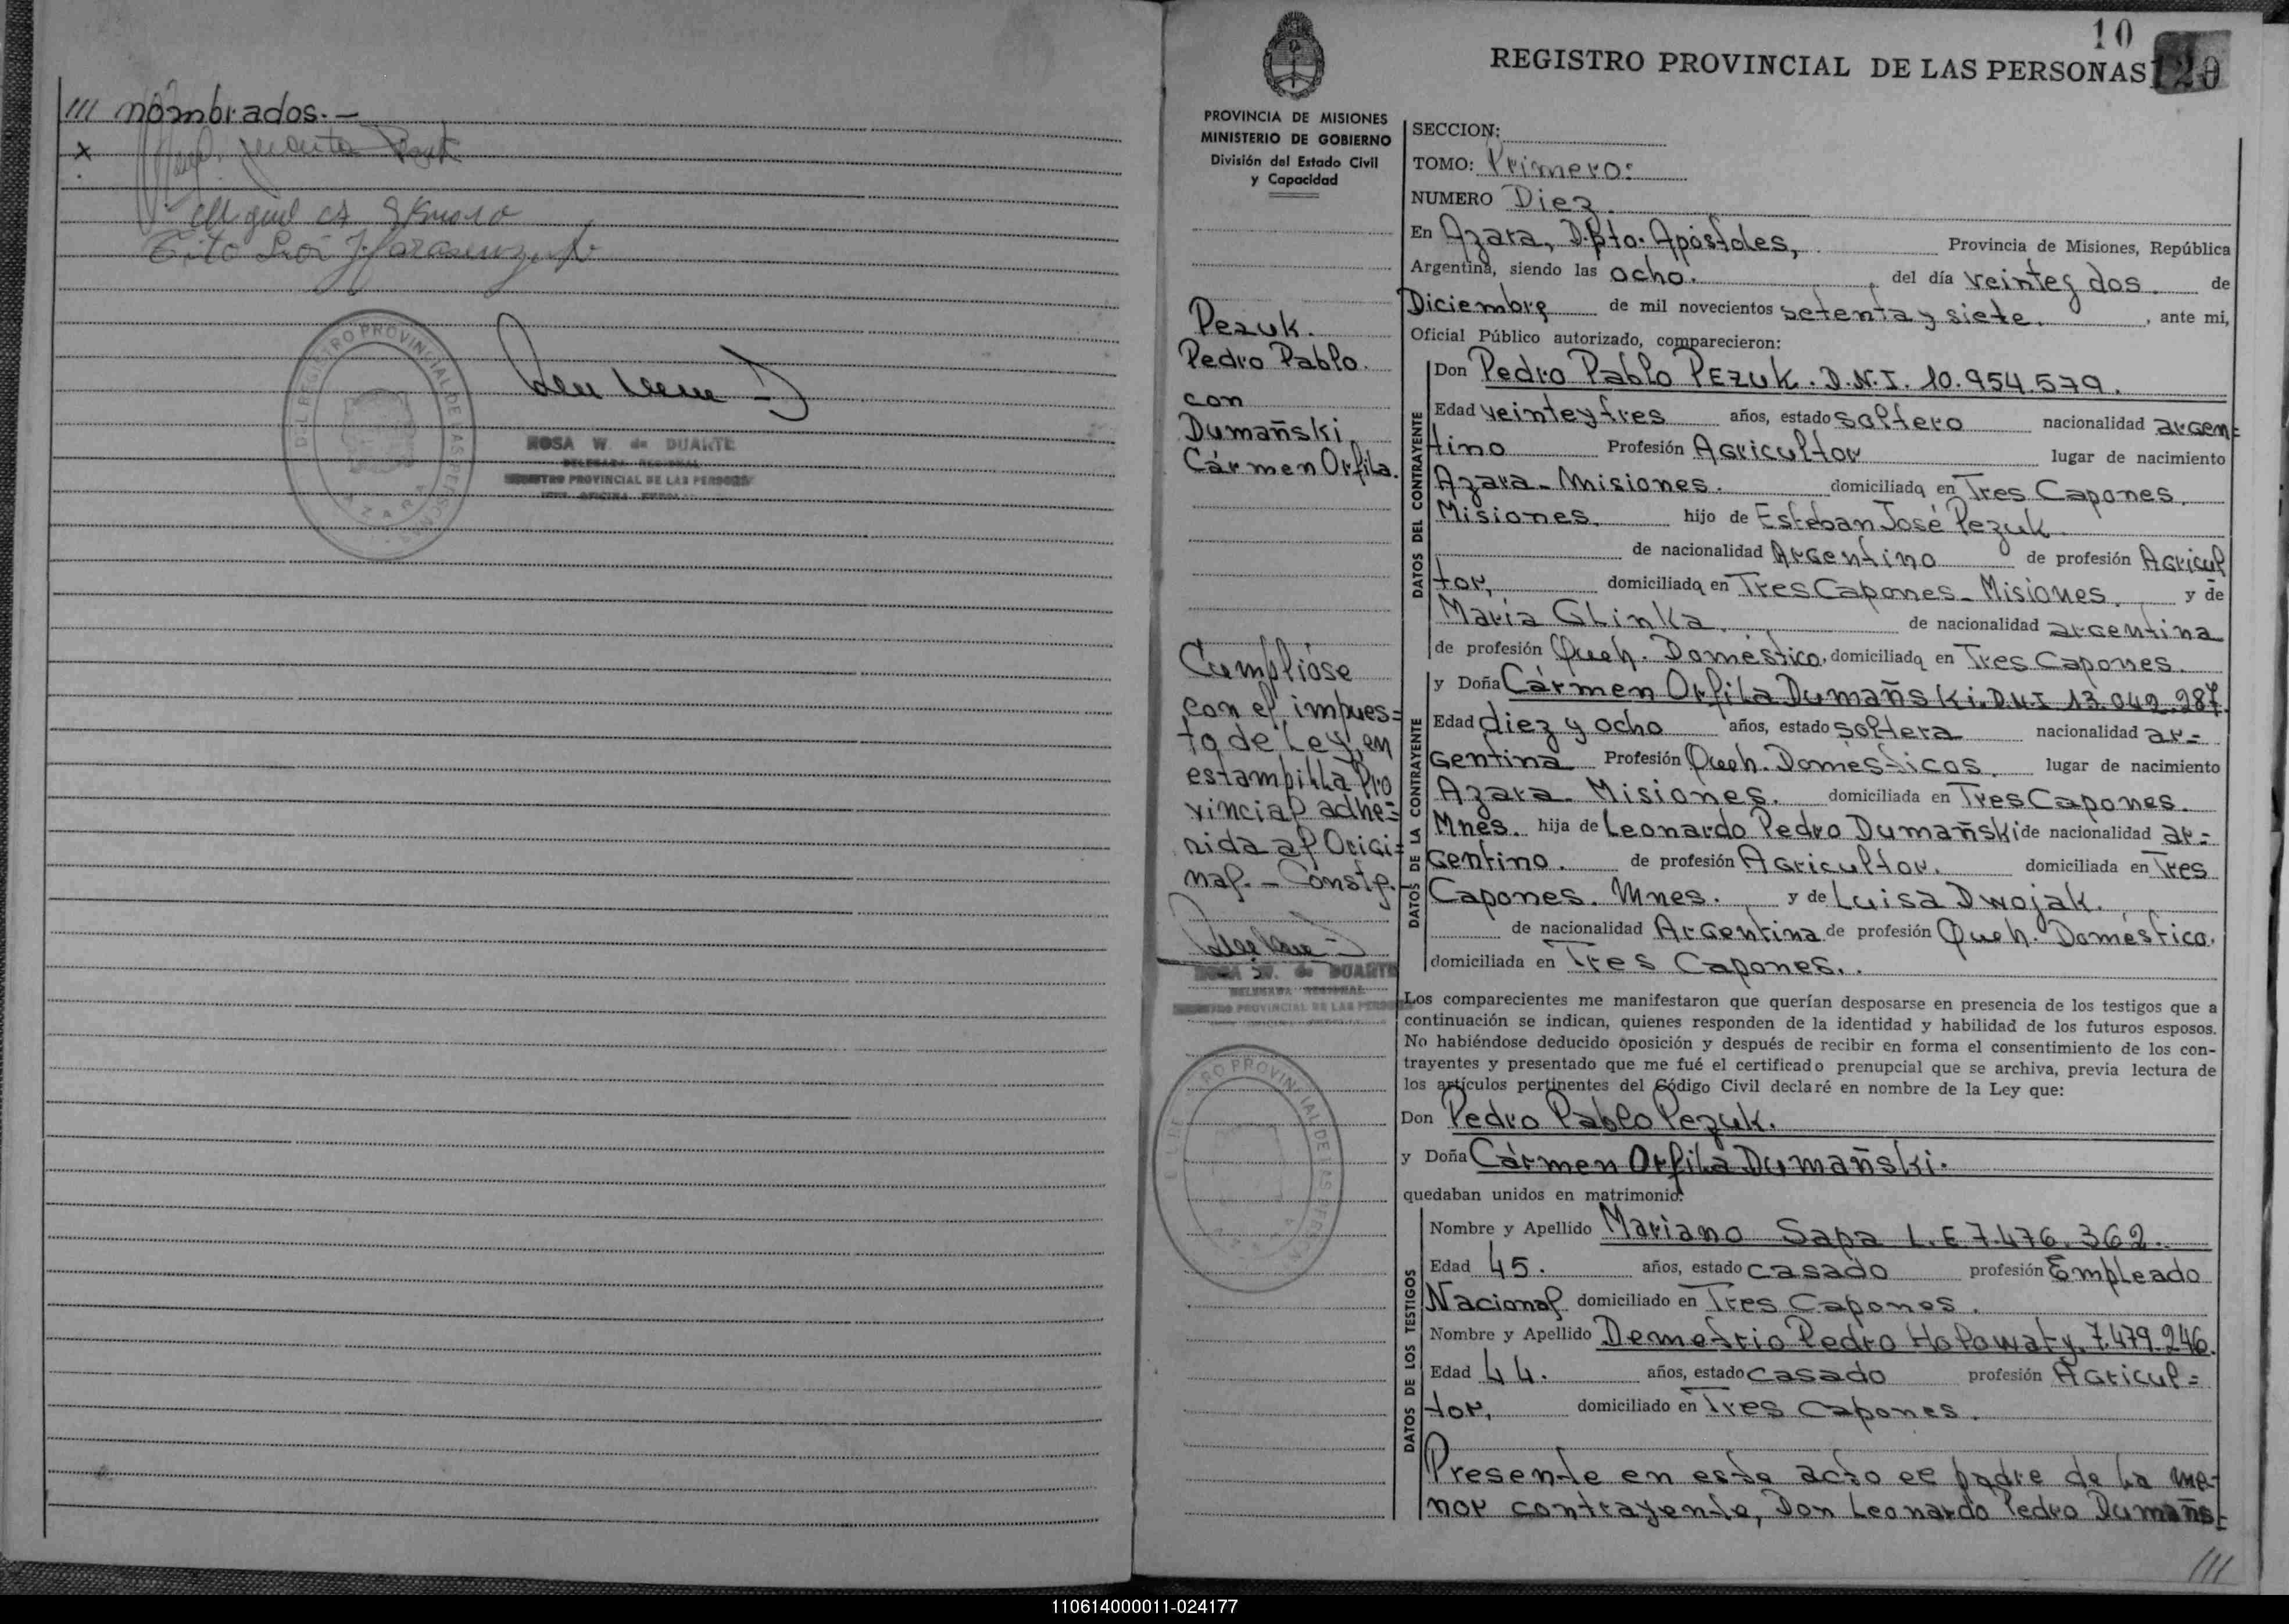 /// nombrados.—
x
Tito
DEL REGISTRO PROVINCIAL DE LAS PERSONAS
AZARA
ROSA W. de DUARTE
DELEGADA REGIONAL
REGISTRO PROVINCIAL DE LAS PERSONAS
10
REGISTRO PROVINCIAL DE LAS PERSONAS 120
PROVINCIA DE MISIONES
MINISTERIO DE GOBIERNO
División del Estado Civil
y Capacidad
Pezuk.
Pedro Pablo.
con
Dumañski
Cármen Orfila.
Cumplióse
con el impues=
to de Ley, en
estampilla Pro
vincial adhe=
rida al Origi=
nal.- Conste.-
ROSA W. de DUARTE
DELEGADA REGIONAL
REGISTRO PROVINCIAL DE LAS PERSONAS
SECCION:
TOMO: Primero:
NUMERO Diez.
En Azara, Dpto. Apóstoles, Provincia de Misiones, República
Argentina, siendo las ocho. del día veinte y dos. de
Diciembre de mil novecientos setenta y siete. , ante mi,
Oficial Público autorizado, comparecieron:
DATOS DEL CONTRAYENTE
Don Pedro Pablo PEZUK. D.N.I. 10.954.579.
Edad veinte y tres años, estado soltero nacionalidad argen=
tino Profesión Agricultor lugar de nacimiento
Azara - Misiones. domiciliado en Tres Capones,
Misiones, hijo de Esteban José Pezuk
de nacionalidad Argentino de profesión Agricul
tor, domiciliado en Tres Capones - Misiones, y de
María Glinka. de nacionalidad argentina
de profesión Queh. Doméstico, domiciliada en Tres Capones.
DATOS DE LA CONTRAYENTE
y Doña Cármen Orfila Dumañski. D.N.I 13.042.287.
Edad diez y ocho años, estado soltera nacionalidad ar=
gentina Profesión Queh. Domesticos. lugar de nacimiento
Azara. Misiones. domiciliada en Tres Capones.
Mnes. hija de Leonardo Pedro Dumañski de nacionalidad ar=
gentino. de profesión Agricultor. domiciliada en Tres
Capones. Mnes. y de Luisa Dwojak.
de nacionalidad Argentina de profesión Queh. Doméstico.
domiciliada en Tres Capones.
Los comparecientes me manifestaron que querían desposarse en presencia de los testigos que a
continuación se indican, quienes responden de la identidad y habilidad de los futuros esposos.
No habiéndose deducido oposición y después de recibir en forma el consentimiento de los con-
trayentes y presentado que me fué el certificado prenupcial que se archiva, previa lectura de
los artículos pertinentes del Código Civil declaré en nombre de la Ley que:
Don Pedro Pablo Pezuk.
y Doña Cármen Orfila Dumañski.
quedaban unidos en matrimonio.
DATOS DE LOS TESTIGOS
Nombre y Apellido Mariano Sapa L.E. 7.476.362.
Edad 45. años, estado casado profesión Empleado
Nacional domiciliado en Tres Capones.
Nombre y Apellido Demetrio Pedro Holowaty. 7.479.246.
Edad 44. años, estado casado profesión Agricul=
tor, domiciliado en Tres Capones.
Presente en este acto el padre de la me-
nor contrayente, Don Leonardo Pedro Dumañs=
///
110614000011-024177